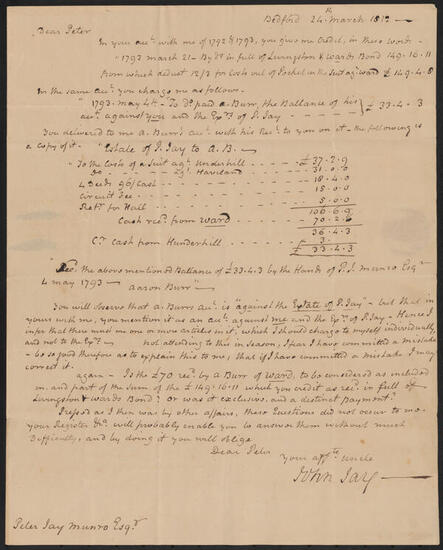 Bedford 24th March 181
Dear Peter
In your acct. with me of 1792 & 1793, you give me Credit, in these words—
"1793 march 21— By Do in full of Livingston & Wards Bond 149.16.11
from which deduct 12/3 for Costs out of Pocket in the Suit agt ward £149.4.8
In the same acct you charge me as follows.
"1793. May 4th— To Do paid A. Burr, the Ballance of his
acct against you and the Exrs of P. Jay— £33.4.3
You delivered to me A. Burr's acct with his Rect to you on it— the following is
a copy of it. "Estate of P. Jay to A. B.—
"To the Costs of a Suit agt Underhill - - - - £37.2.9
Do - - - agt Haviland - - - - 31.0.0
4 Deeds 96/ Cash - - - - 18.4.0
Circuit fee - - - - 15.0.0
Retr for Hall - - - - 5.0.0
106.6.9
Cash recd from Ward - - - - 70.2.6
36.4.3
Cr Cash from Hunderhill - - - - 3.
£33.4.3
Recd the above mentioned Ballance of £33.4.3 by the Hands of P. J. Munro Esqr
4 May 1793— Aaron Burr"
You will observe that A. Burrs acct is "against the Estate of P. Jay— but that in
yours with me, you mention it as an acct against me and the Exrs of P. Jay— Hence I
infer that there must be one or more articles in it, which I should charge to myself individually,
and not to the Exrs— not attending to this in Season, I fear I have committed a mistake
— be so good therefore as to explain this to me, that if I have committed a mistake I may
correct it.
again— Is the £70 recd by A Burr of Ward, to be considered as included
in, and part of the Sum of the £149.16.11 which you credit as recd in full of
Livingston & Wards Bond? or was it exclusive, and a distinct payment?
Pressed as I then was by other affairs, these Questions did not occur to me.
your Register &c. will probably enable you to answer them without much
Difficulty, and by doing it you will oblige
Dear Peter
Your affte uncle
John Jay—
Peter Jay Munro Esqr.